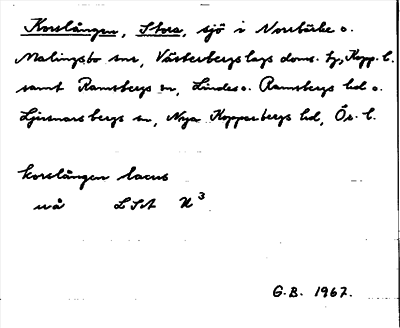 Korslången, Stora, sjö i Norrbärke o.
Malingsbo snr, Västerbergslags doms. tg, Kopp. l.
samt Ramsbergs sn, Lindes o. Ramsbergs hd o.
Ljusnarsbergs sn, Nya Kopparbergs hd, Ör. l.
korslången lacus
LSA N³
G.B. 1967.